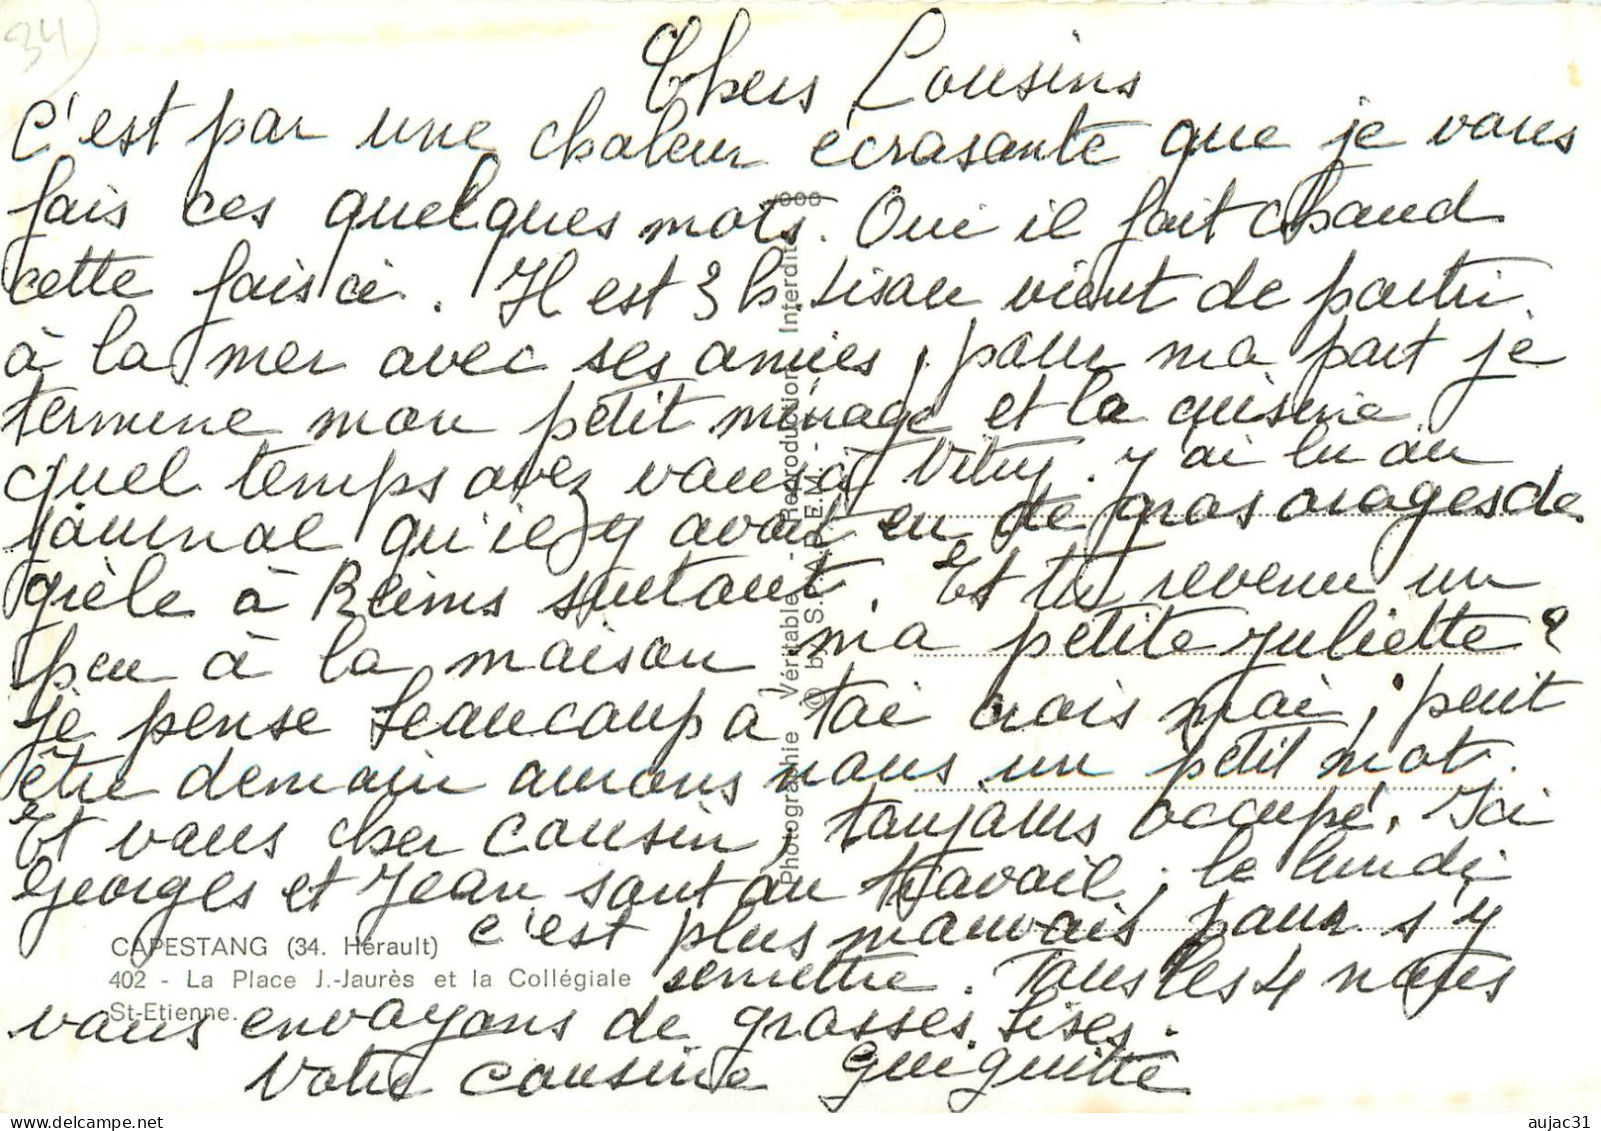 34
Chers Cousins
C'est par une chaleur écrasante que je vous
fais ces quelques mots. Oui il fait chaud
cette fois ci. Il est 3 h. Lison vient de partir
à la mer avec ses amies, pour ma part je
termine mon petit ménage et la cuisine
quel temps avez vous à Vitry. J'ai lu au
journal qu'il y avait eu de gros orages de
grèle à Reims surtout. Es tu revenu un
peu à la maison ma petite Juliette?
Je pense beaucoup à toi crois moi, peut
être demain aurons nous un petit mot.
Et vous cher cousin, toujours occupé. Ici
Georges et Jean sont au travail, le lundi
c'est plus mauvais pour s'y
remettre. Tous les 4 nous
vous envoyons de grosses bises.
Votre cousine Guiguitte
CAPESTANG (34. Hérault)
402 - La Place J.-Jaurès et la Collégiale
St-Etienne.
Photographie Véritable - Reproduction Interdite
delcampe.net
aujac31